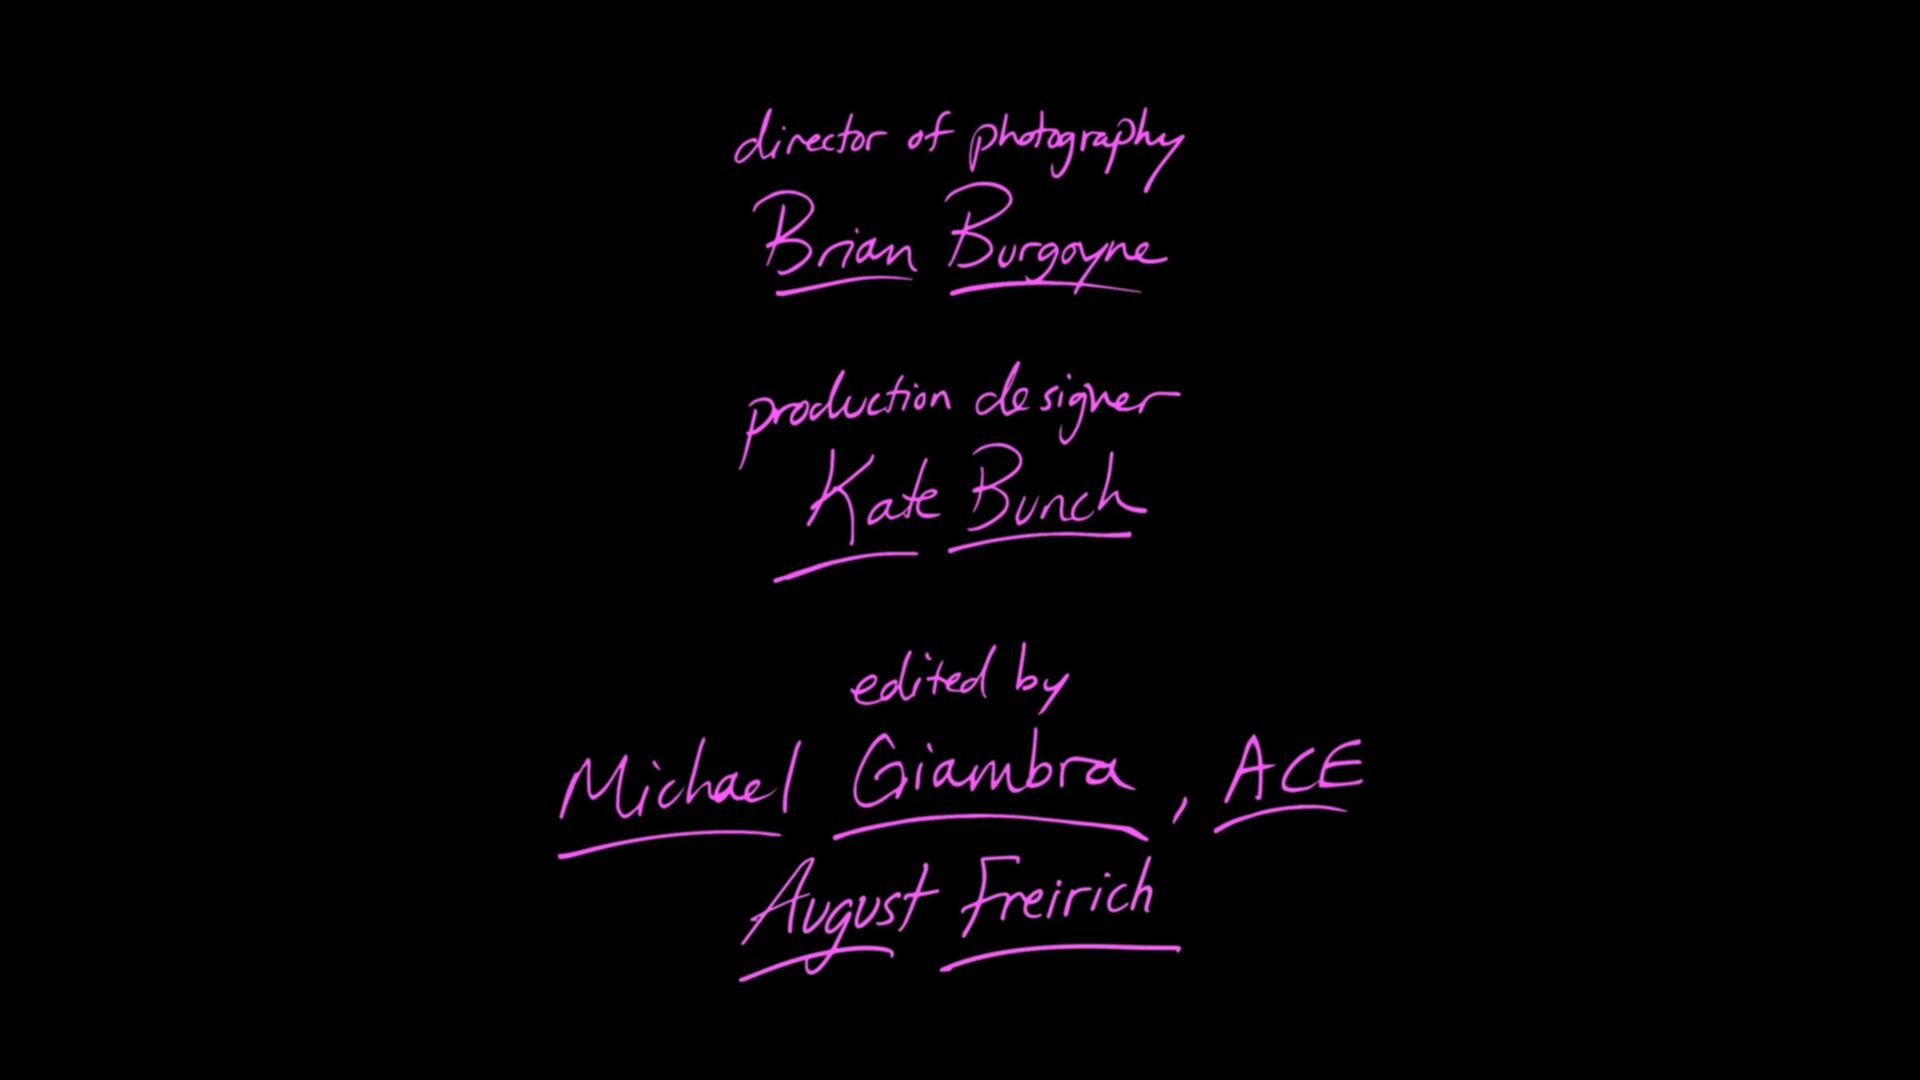 director of photography
Brian Burgoyne
production designer
Kate Bunch
edited by
Michael Giambra, ACE
August Freirich